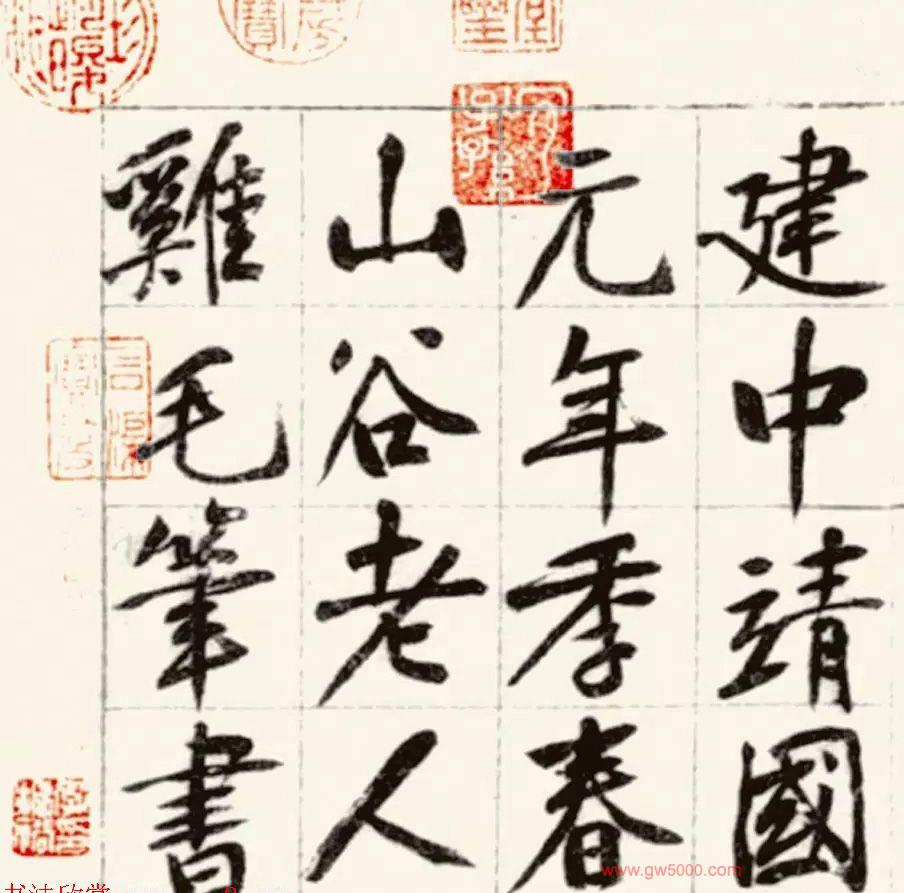 建中靖國
元年季春
山谷老人
雞毛筆書
www.gw5000.com
书法欣赏